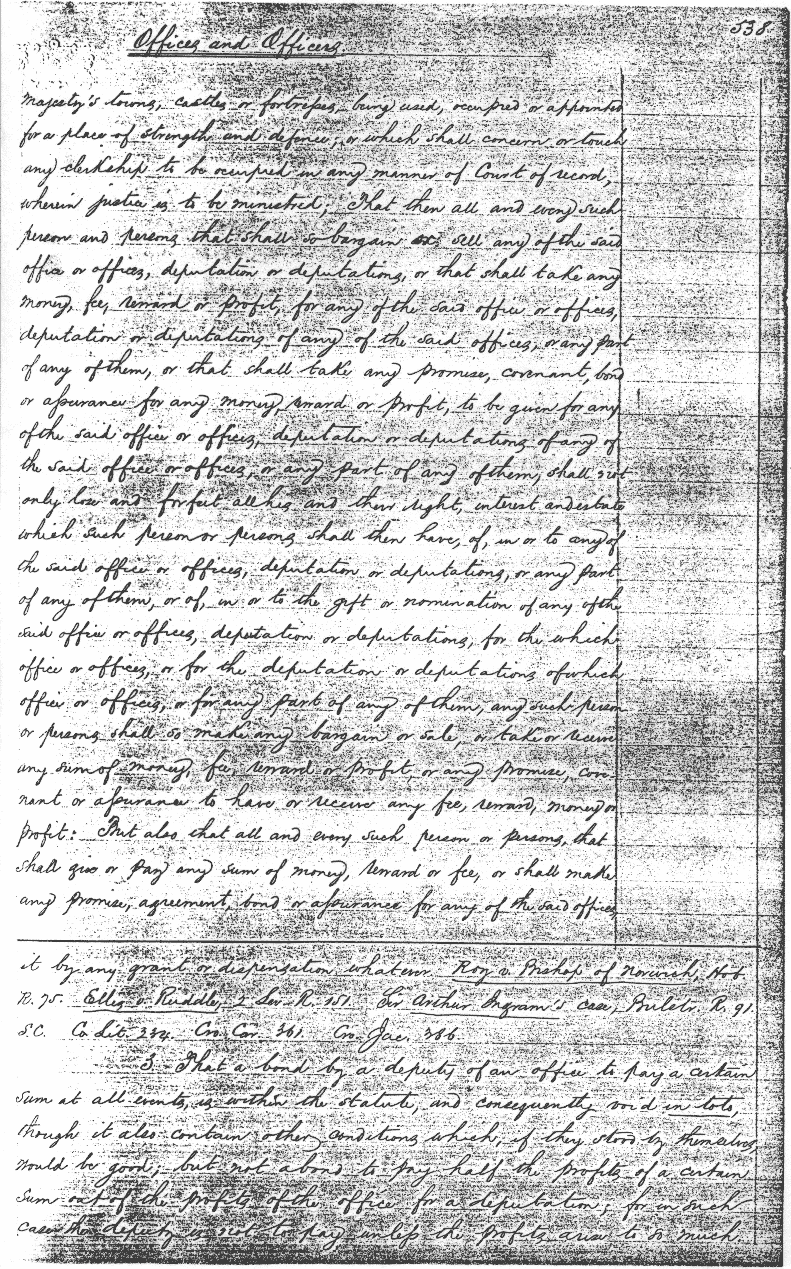 538
Offices and Officers.
majesty's towns, castles or fortresses, being used, occupied or appointed
for a place of strength and defence, or which shall concern or touch
any clerkship to be occupied in any manner of Court of record,
wherein justice is to be ministred; That then all and every such
person and persons that shall so bargain or sell any of the said
office or offices, deputation or deputations, or that shall take any
money, fee, reward or profit, for any of the said office or offices,
deputation or deputations of any of the said offices, or any part
of any of them, or that shall take any promise, covenant, bond
or assurance for any money, reward or profit, to be given for any
of the said office or offices, deputation or deputations of any of
the said office or offices, or any part of any of them, shall not
only lose and forfeit all his and their right, interest and estate
which such person or persons shall then have, of, in or to any of
the said office or offices, deputation or deputations, or any part
of any of them, or of, in or to the gift or nomination of any of the
said office or offices, deputation or deputations, for the which
office or offices, or for the deputation or deputations of which
office or offices, or for any part of any of them, any such person
or persons shall so make any bargain or sale, or take or receive
any sum of money, fee, reward or profit, or any promise, cove-
nant or assurance to have or receive any fee, reward, money or
profit: But also that all and every such person or persons, that
shall give or pay any sum of money, reward or fee, or shall make
any promise, agreement, bond or assurance for any of the said offices
it by any grant or dispensation whatever. Roy v. Bishop of Norwich, Hob.
R. 75. Ellis v. Ruddle, 2 Lev. R. 151. Sir Arthur Ingram's case, Bulstr. R. 91.
S.C. Co. Lit. 234. Cro. Car. 361. Cro. Jac. 386.
3. That a bond by a deputy of an office to pay a certain
sum at all events, is within the statute, and consequently void in toto,
though it also contain other conditions which, if they stood by themselves,
would be good; but not a bond to pay half the profits of a certain
sum out of the profits of the office for a deputation; for in such
case the deputy is not to pay unless the profits arise to so much.